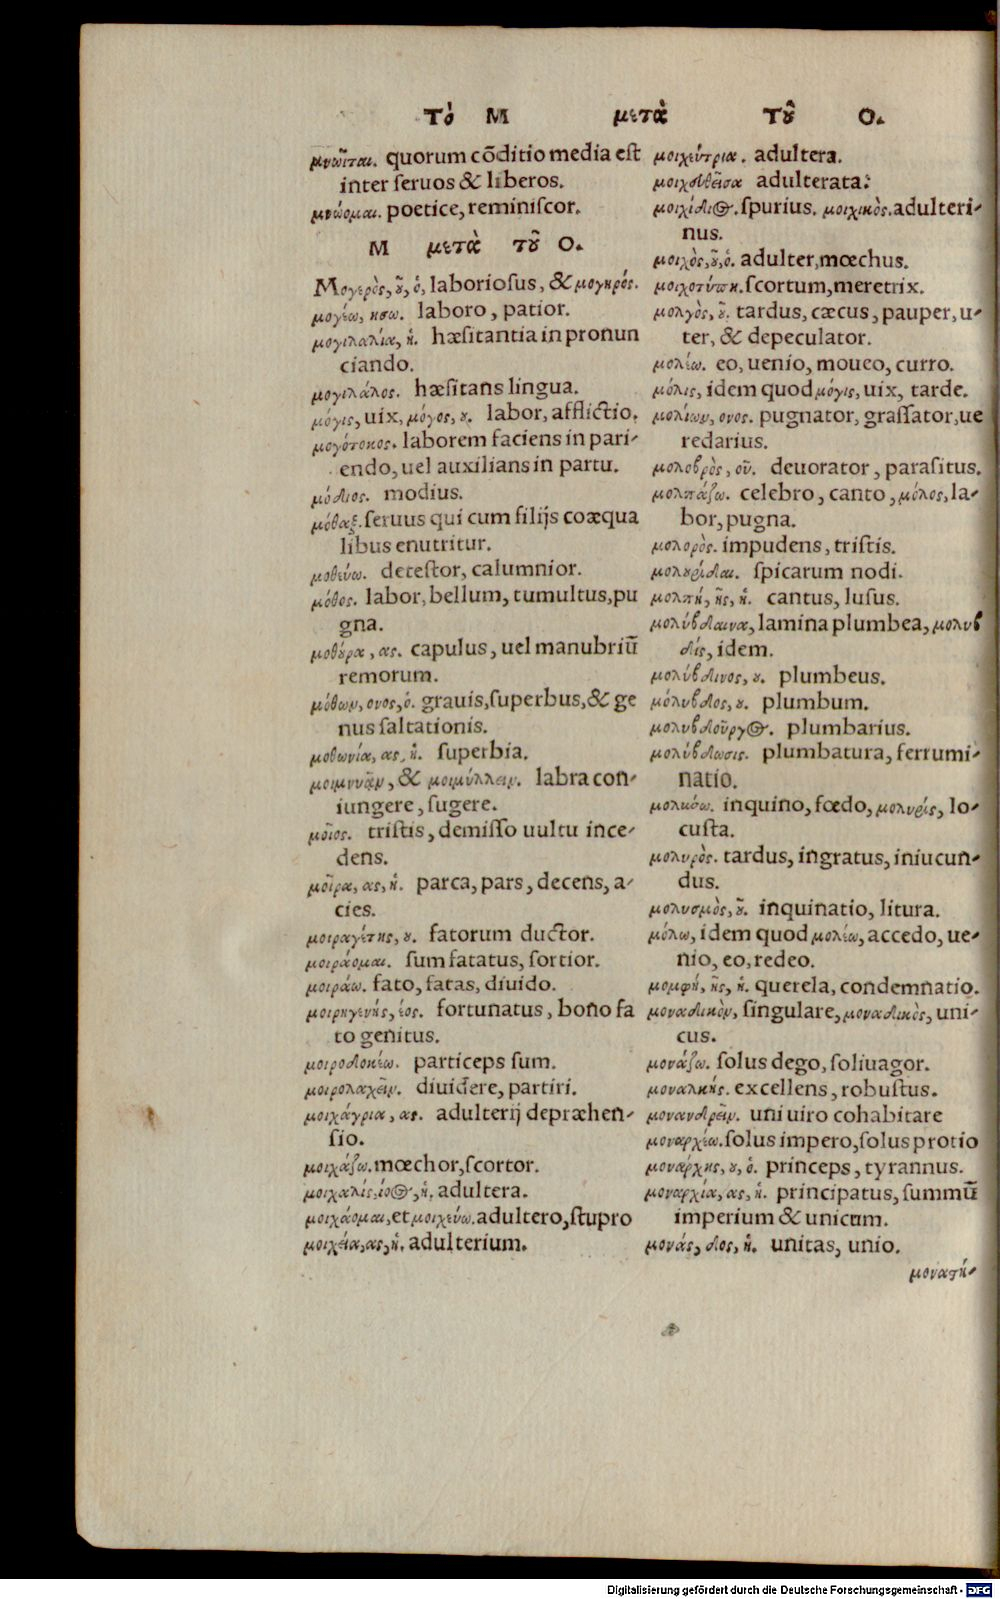 Τὸ Μ μετὰ τοῦ Ο.
μνωῖται. quorum cõditio media est
inter seruos & liberos.
μνώομαι. poetice, reminiscor.
Μ μετὰ τοῦ Ο.
Μογερὸς, οῦ, ὁ, laboriosus, & μογηρός.
μογέω, ησω. laboro, patior.
μογιλαλία, ἡ. hæsitantia in pronun
ciando.
μογιλάλος. hæsitans lingua.
μόγις, uix, μόγος, ου. labor, afflictio.
μογότοκος. laborem faciens in pari-
endo, uel auxilians in partu.
μόδιος. modius.
μόθαξ. seruus qui cum filijs coæqua
libus enutritur.
μοθεύω. detestor, calumnior.
μόθος. labor, bellum, tumultus, pu
gna.
μοθούρα, ας. capulus, uel manubriũ
remorum.
μόθων, ονος, ὁ. grauis, superbus, & ge
nus saltationis.
μοθωνία, ας, ἡ. superbia.
μοιμυνᾷν, & μοιμύλλειν. labra con-
iungere, sugere.
μοῖος. tristis, demisso uultu ince-
dens.
μοῖρα, ας, ἡ. parca, pars, decens, a-
cies.
μοιραγέτης, ου. fatorum ductor.
μοιράομαι. sum fatatus, sortior.
μοιράω. fato, fatas, diuido.
μοιρηγενής, έος. fortunatus, bono fa
to genitus.
μοιροδοκέω. particeps sum.
μοιρολαχεῖν. diuidere, partiri.
μοιχάγρια, ας. adulterij depræhen-
sio.
μοιχάζω. mœchor, scortor.
μοιχαλίς, ίδος, ἡ. adultera.
μοιχάομαι, et μοιχεύω. adultero, stupro
μοιχεία, ας, ἡ. adulterium.
μοιχεύτρια. adultera.
μοιχευθεῖσα adulterata:
μοιχίδιος. spurius. μοιχικὸς. adulteri-
nus.
μοιχὸς, οῦ, ὁ. adulter, mœchus.
μοιχοτύπη. scortum, meretrix.
μολγὸς, οῦ. tardus, cæcus, pauper, u-
ter, & depeculator.
μολέω. eo, uenio, moueo, curro.
μόλις, idem quod μόγις, uix, tarde.
μολίων, ονος. pugnator, grassator, ue
redarius.
μολοβρὸς, οῦ. deuorator, parasitus.
μολπάζω. celebro, canto, μόλος, la-
bor, pugna.
μολορὸς. impudens, tristis.
μολουρίδαι. spicarum nodi.
μολπή, ῆς, ἡ. cantus, lusus.
μολύβδαινα, lamina plumbea, μολυβ
δίς, idem.
μολύβδινος, ου. plumbeus.
μόλυβδος, ου. plumbum.
μολυβδοῦργος. plumbarius.
μολύβδωσις. plumbatura, ferrumi-
natio.
μολύσω. inquino, fœdo, μολυρίς, lo-
custa.
μολυρὸς. tardus, ingratus, iniucun-
dus.
μολυσμὸς, οῦ. inquinatio, litura.
μόλω, idem quod μολέω, accedo, ue-
nio, eo, redeo.
μομφή, ῆς, ἡ. querela, condemnatio.
μοναδικὸν, singulare, μοναδικὸς, uni-
cus.
μονάζω. solus dego, soliuagor.
μοναλκής. excellens, robustus.
μονανδρεῖν. uni uiro cohabitare
μοναρχέω. solus impero, solus protio
μονάρχης, ου, ὁ. princeps, tyrannus.
μοναρχία, ας, ἡ. principatus, summũ
imperium & unicum.
μονάς, δος, ἡ. unitas, unio.
μοναστή-
Digitalisierung gefördert durch die Deutsche Forschungsgemeinschaft - DFG